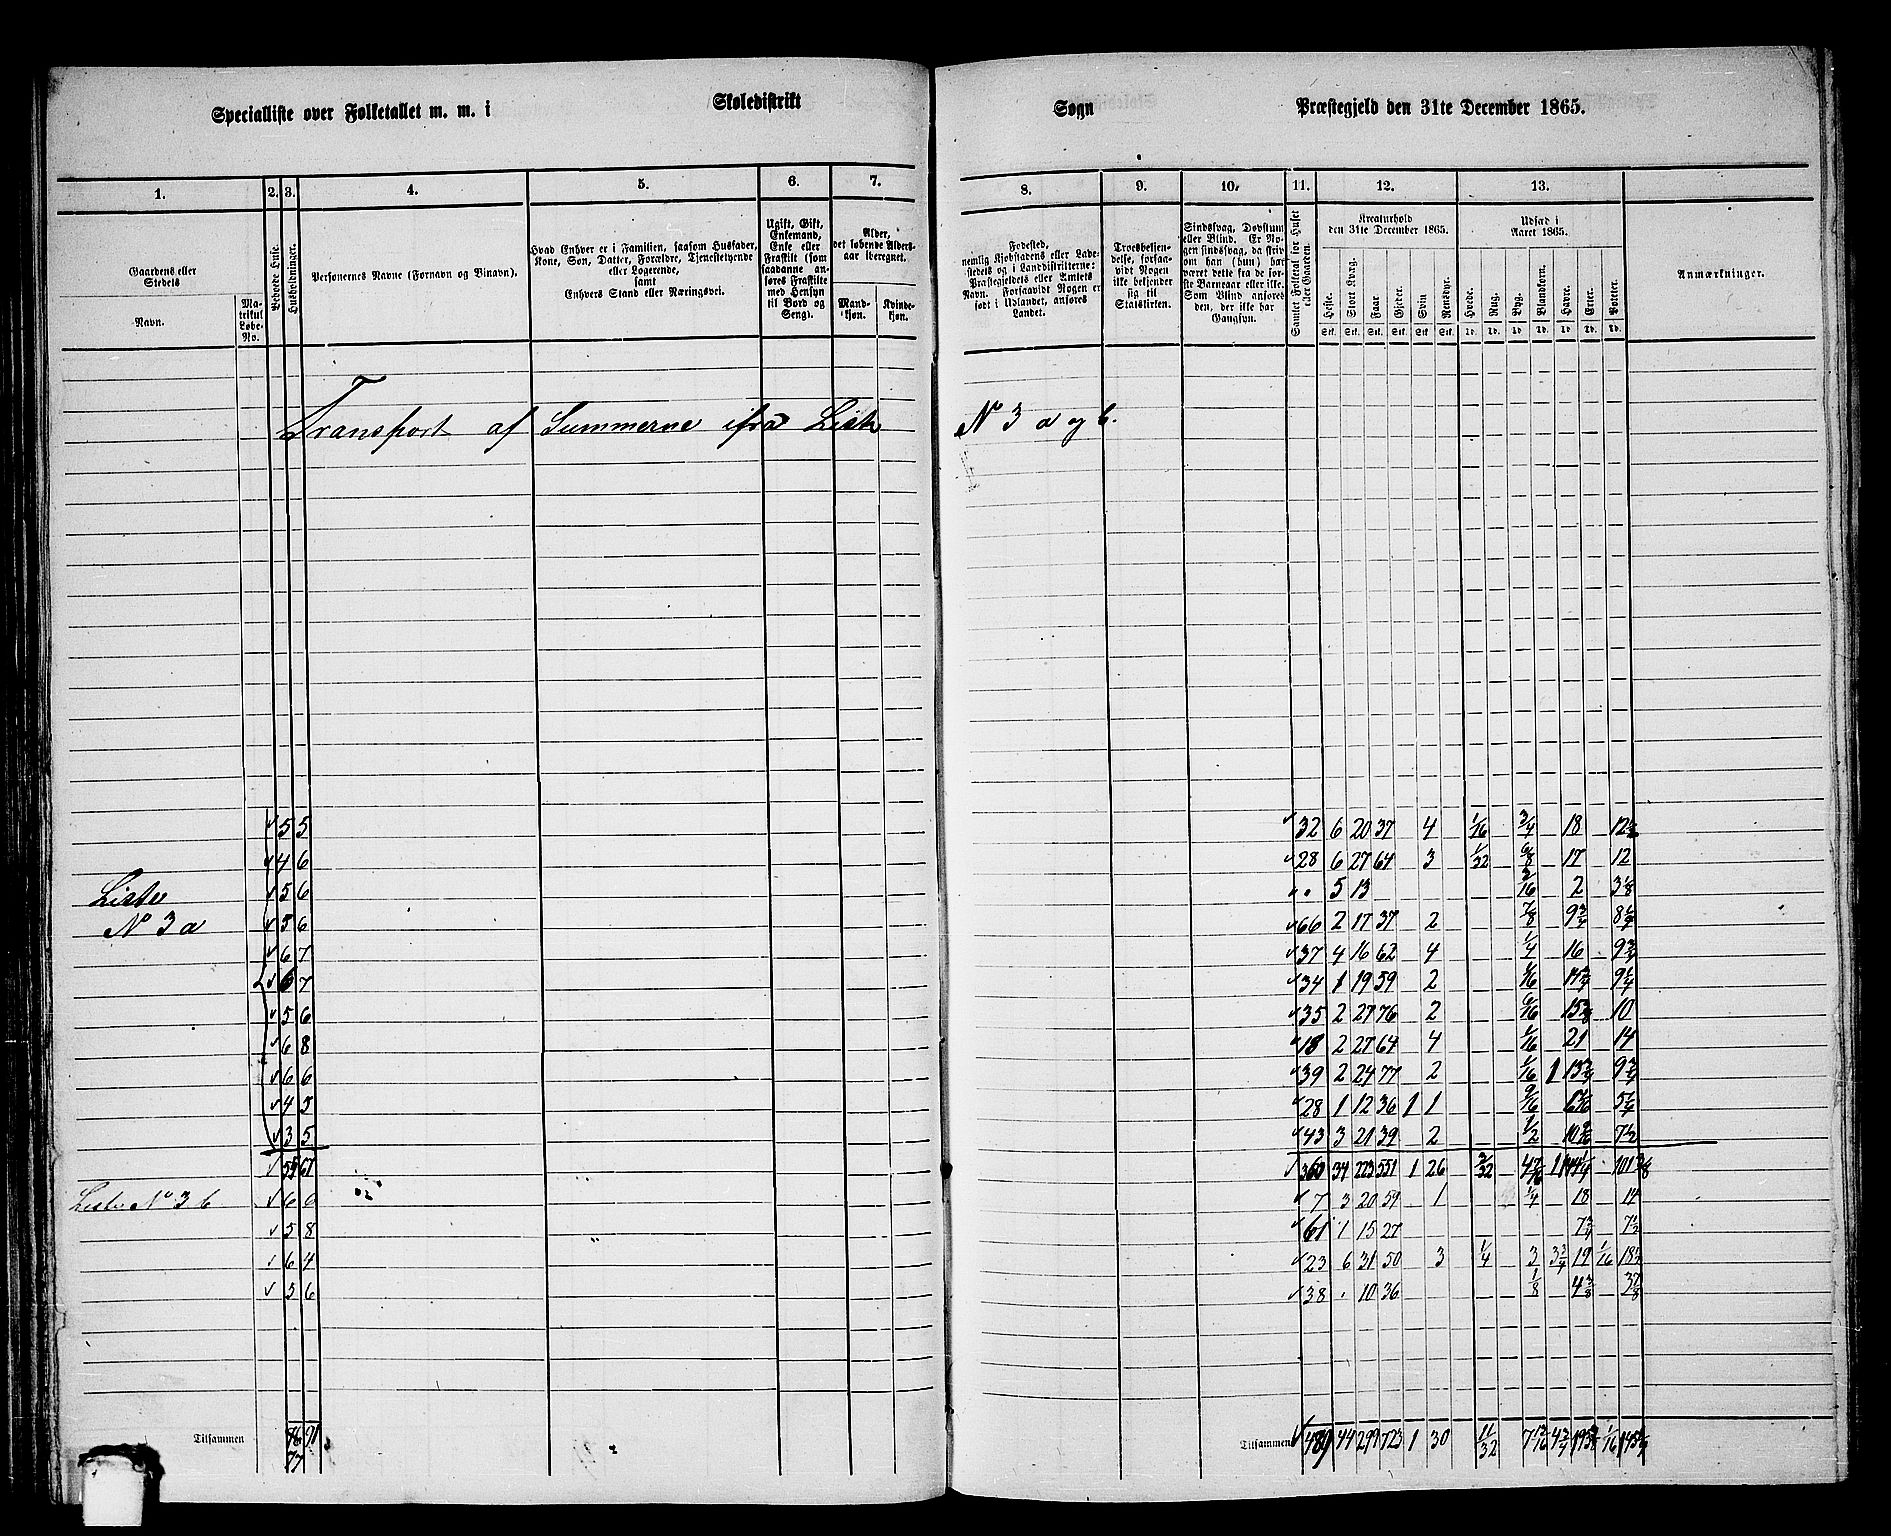 Specialliste over Folketallet m. m. i Skoledistrikt Sogn Præstegjeld den 31te December 1865.
1. 2. 3. 4. 5. 6. 7. 8. 9. 10. 11. 12. 13.
Gaardens eller Stedets
Navn.
Matrikul Løbe-No.
Bebvede Huse.
Husholdninger.
Personernes Navne (Fornavn og Binavn).
Hvad Enhver er i Familien, saasom Husfader,
Kone, Søn, Datter, Forældre, Tjenestetyende
eller Logerende,
samt
Enhvers Stand eller Næringsvei.
Ugift, Gift,
Enkemand,
Enke eller
Fraskilt (som
saadanne anføres
Fraskilte
med Hensyn
til Bord og
Seng).
Alder,
det løbende Aldersaar
iberegnet.
Mandkjøn.
Kvindekjøn.
Fødested,
nemlig Kjøbstadens eller Ladestedets
og i Landdistrikterne:
Præstegjeldets eller Amtets
Navn. Forsaavidt Nogen er
født i Udlandet, anføres
Landet.
Troesbekjendelse,
forsaavidt
Nogen
ikke bekjender
sig til
Statskirken.
Sindssvag, Døvstum
eller Blind. Er Nogen
sindssvag, da skrives
om han (hun) har
været dette fra de første
Barneaar eller ikke.
Som Blind anføres
den, der ikke har
Gangsyn.
Samlet Folketal for Huset eller Gaarden.
Kreaturhold
den 31te December 1865.
Heste. Stort Kvæg. Faar. Gjeder. Svin. Rensdyr.
Stk. Stk. Stk. Stk. Stk. Stk.
Udsæd i
Aaret 1865.
Hvede. Rug. Byg. Blandkorn. Havre. Erter. Poteter.
Td. Td. Td. Td. Td. Td. Td.
Anmærkninger.
Transport af Summerne ifra Liste No 3 a og b.
5 5 32 6 20 37 4 1/16 3/4 18 12
4 6 28 6 27 64 3 1/32 6/8 17 12
Liste 5 6 5 13 3/16 2 3 1/8
No 3 a 6 66 2 17 37 2 7/8 9 3/4
6 7 37 4 16 62 4 1/4 16 9 3/4
7 34 1 19 59 2 9 1/4
5 6 35 2 27 76 2 10
6 8 18 2 27 64 4 21 14
6 6 39 2 24 77 2 1 9 3/4
4 5 28 1 12 36 1 1 5 1/4
3 5 43 3 21 39 2 1/2 7 1/2
55 67 360 34 223 551 1 26 3/32 101 3/8
Liste No 3 b 6 7 3 20 59 1 1/4 18 14
5 8 61 1 15 27 7 3/4 7 1/2
6 4 23 6 31 50 3 1/4 3 3 3/4 19 1/16
5 6 38 10 36 1/8 4 3/8 3 7/8
Tilsammen 76 91 Tilsammen 489 44 299 723 1 30 11/32 4 3/4 1/16
77